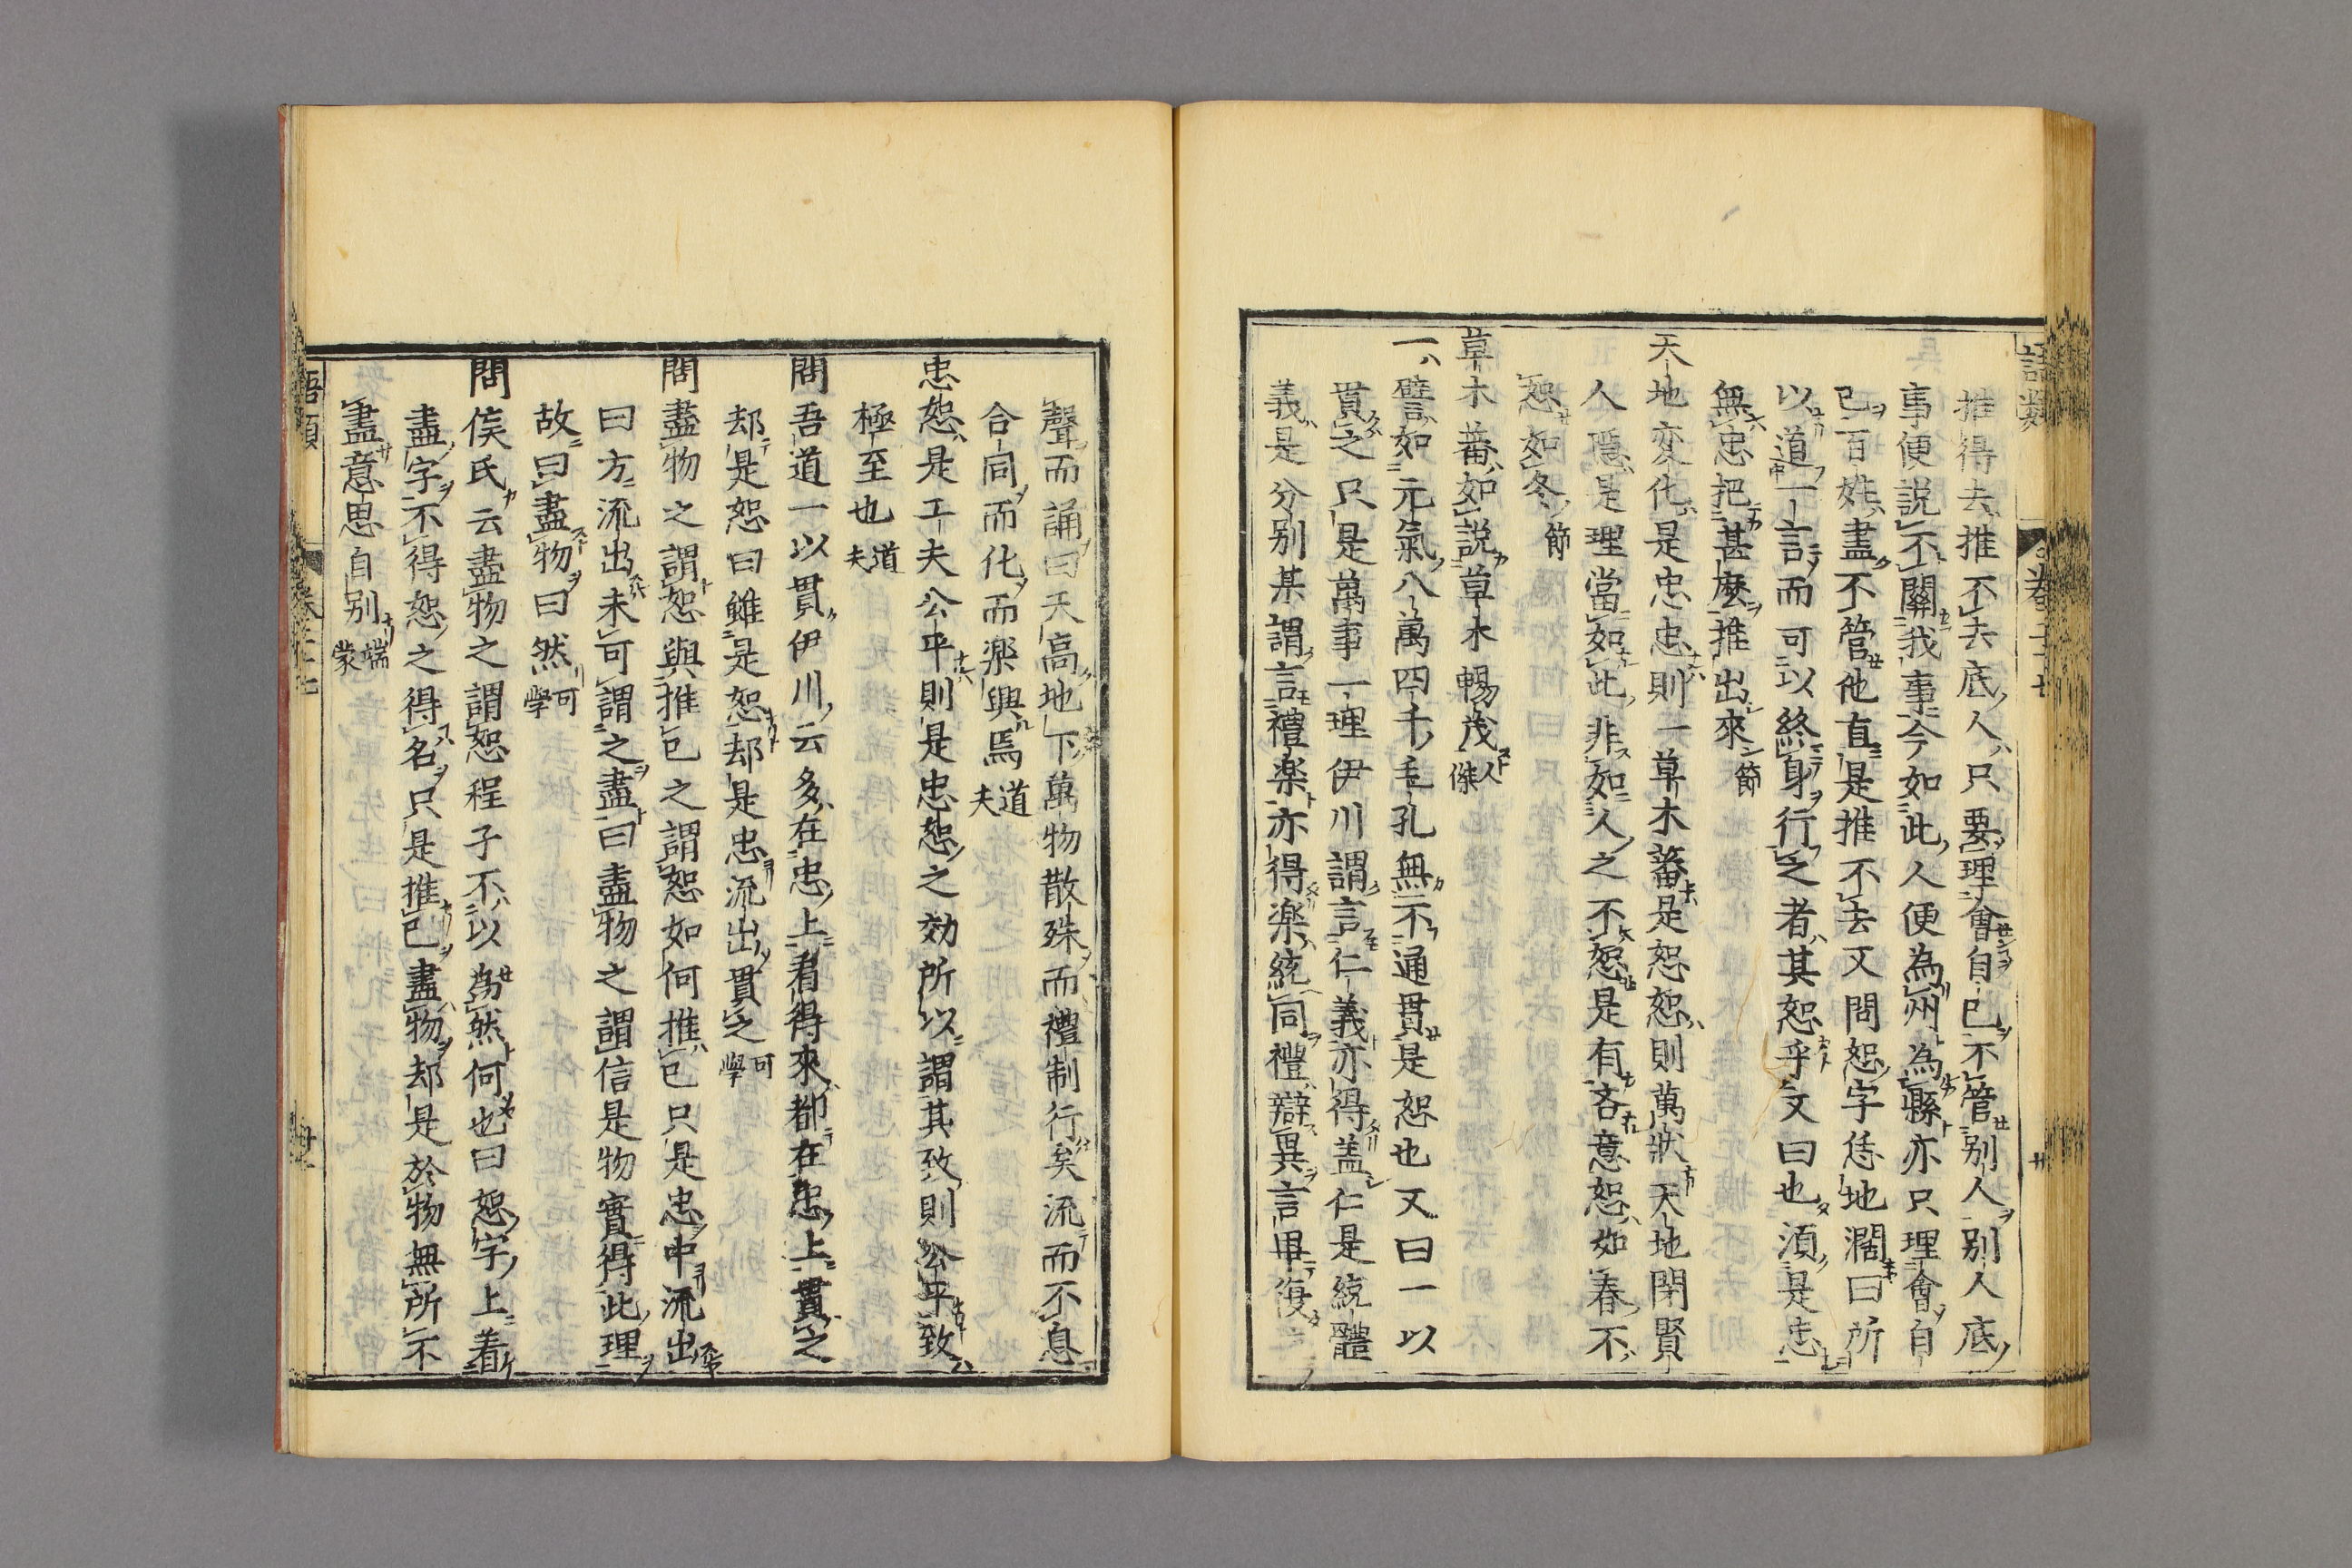 語類　卷二十七　廿
推得去推不去底人只要理會自己不管別人別人底
事便說不關我事今如此人便為州為縣亦只理會自
己百姓盡不管他直是推不去又問恕字恁地濶曰所
以道一言而可以終身行之者其恕乎又曰也須是忠
無忠把甚麼推出來節
天地変化是忠忠則一草木蕃是恕恕則萬狀天地閉賢
人隱是理當如此非如人之不恕是有吝意恕如春不
恕如冬節
草木蕃如說草木暢茂人傑
一譬如元氣八萬四千毛孔無不通貫是恕也又曰一以
貫之只是萬事一理伊川謂言仁義亦得盖仁是統體
義是分別某謂言禮楽亦得楽統同禮辯異言畢復
聲而誦曰天高地下萬物散殊而禮制行矣流而不息
合同而化而楽興焉道夫
忠恕是工夫公平則是忠恕之効所以謂其致則公平致
極至也道夫
問吾道一以貫伊川云多在忠上看得來都在忠上貫之
却是恕曰雖是恕却是忠流出貫之可學
問盡物之謂恕與推己之謂恕如何推己只是忠中流出
曰方流出未可謂之盡曰盡物之謂信是物實得此理
故曰盡物曰然可學
問侯氏云盡物之謂恕程子不以為然何也曰恕字上着
盡字不得恕之得名只是推己盡物却是於物無所不
盡意思自別端蒙
語類　卷二十七　廿一